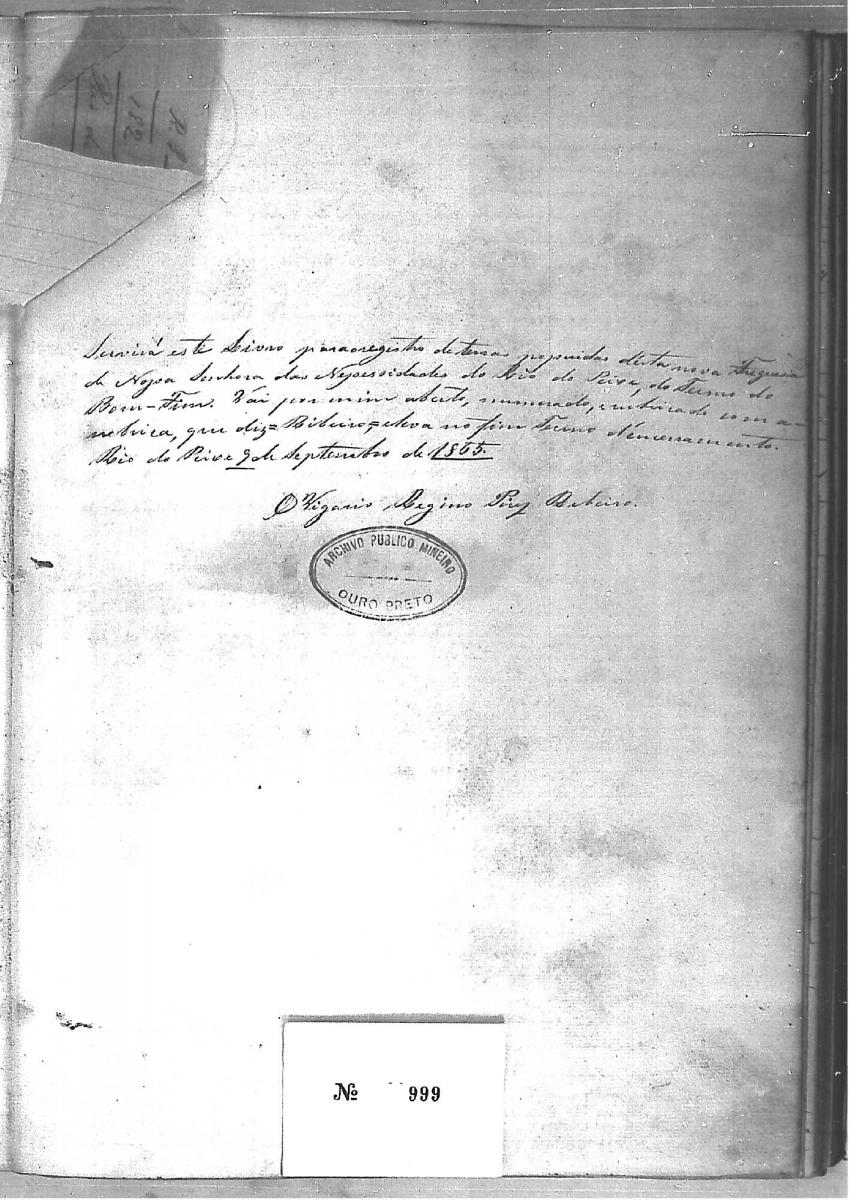 R. P.
182
Rio do
Servirá este Livro para o registro de terras possuidas desta nova Freguesia
de Nossa Senhora das Nessessidades do Rio do Peixe, do Termo do
Bom-Fim. Vai por mim aberto, numerado, rubricado com a
rubrica, que diz = Ribeiro = eleva no fim Termo d'encerramento.
Rio do Peixe 9 de Septembro de 1855.
O Vigario Regino Ribeiro.
ARCHIVO PUBLICO MINEIRO
OURO PRETO
№ 999